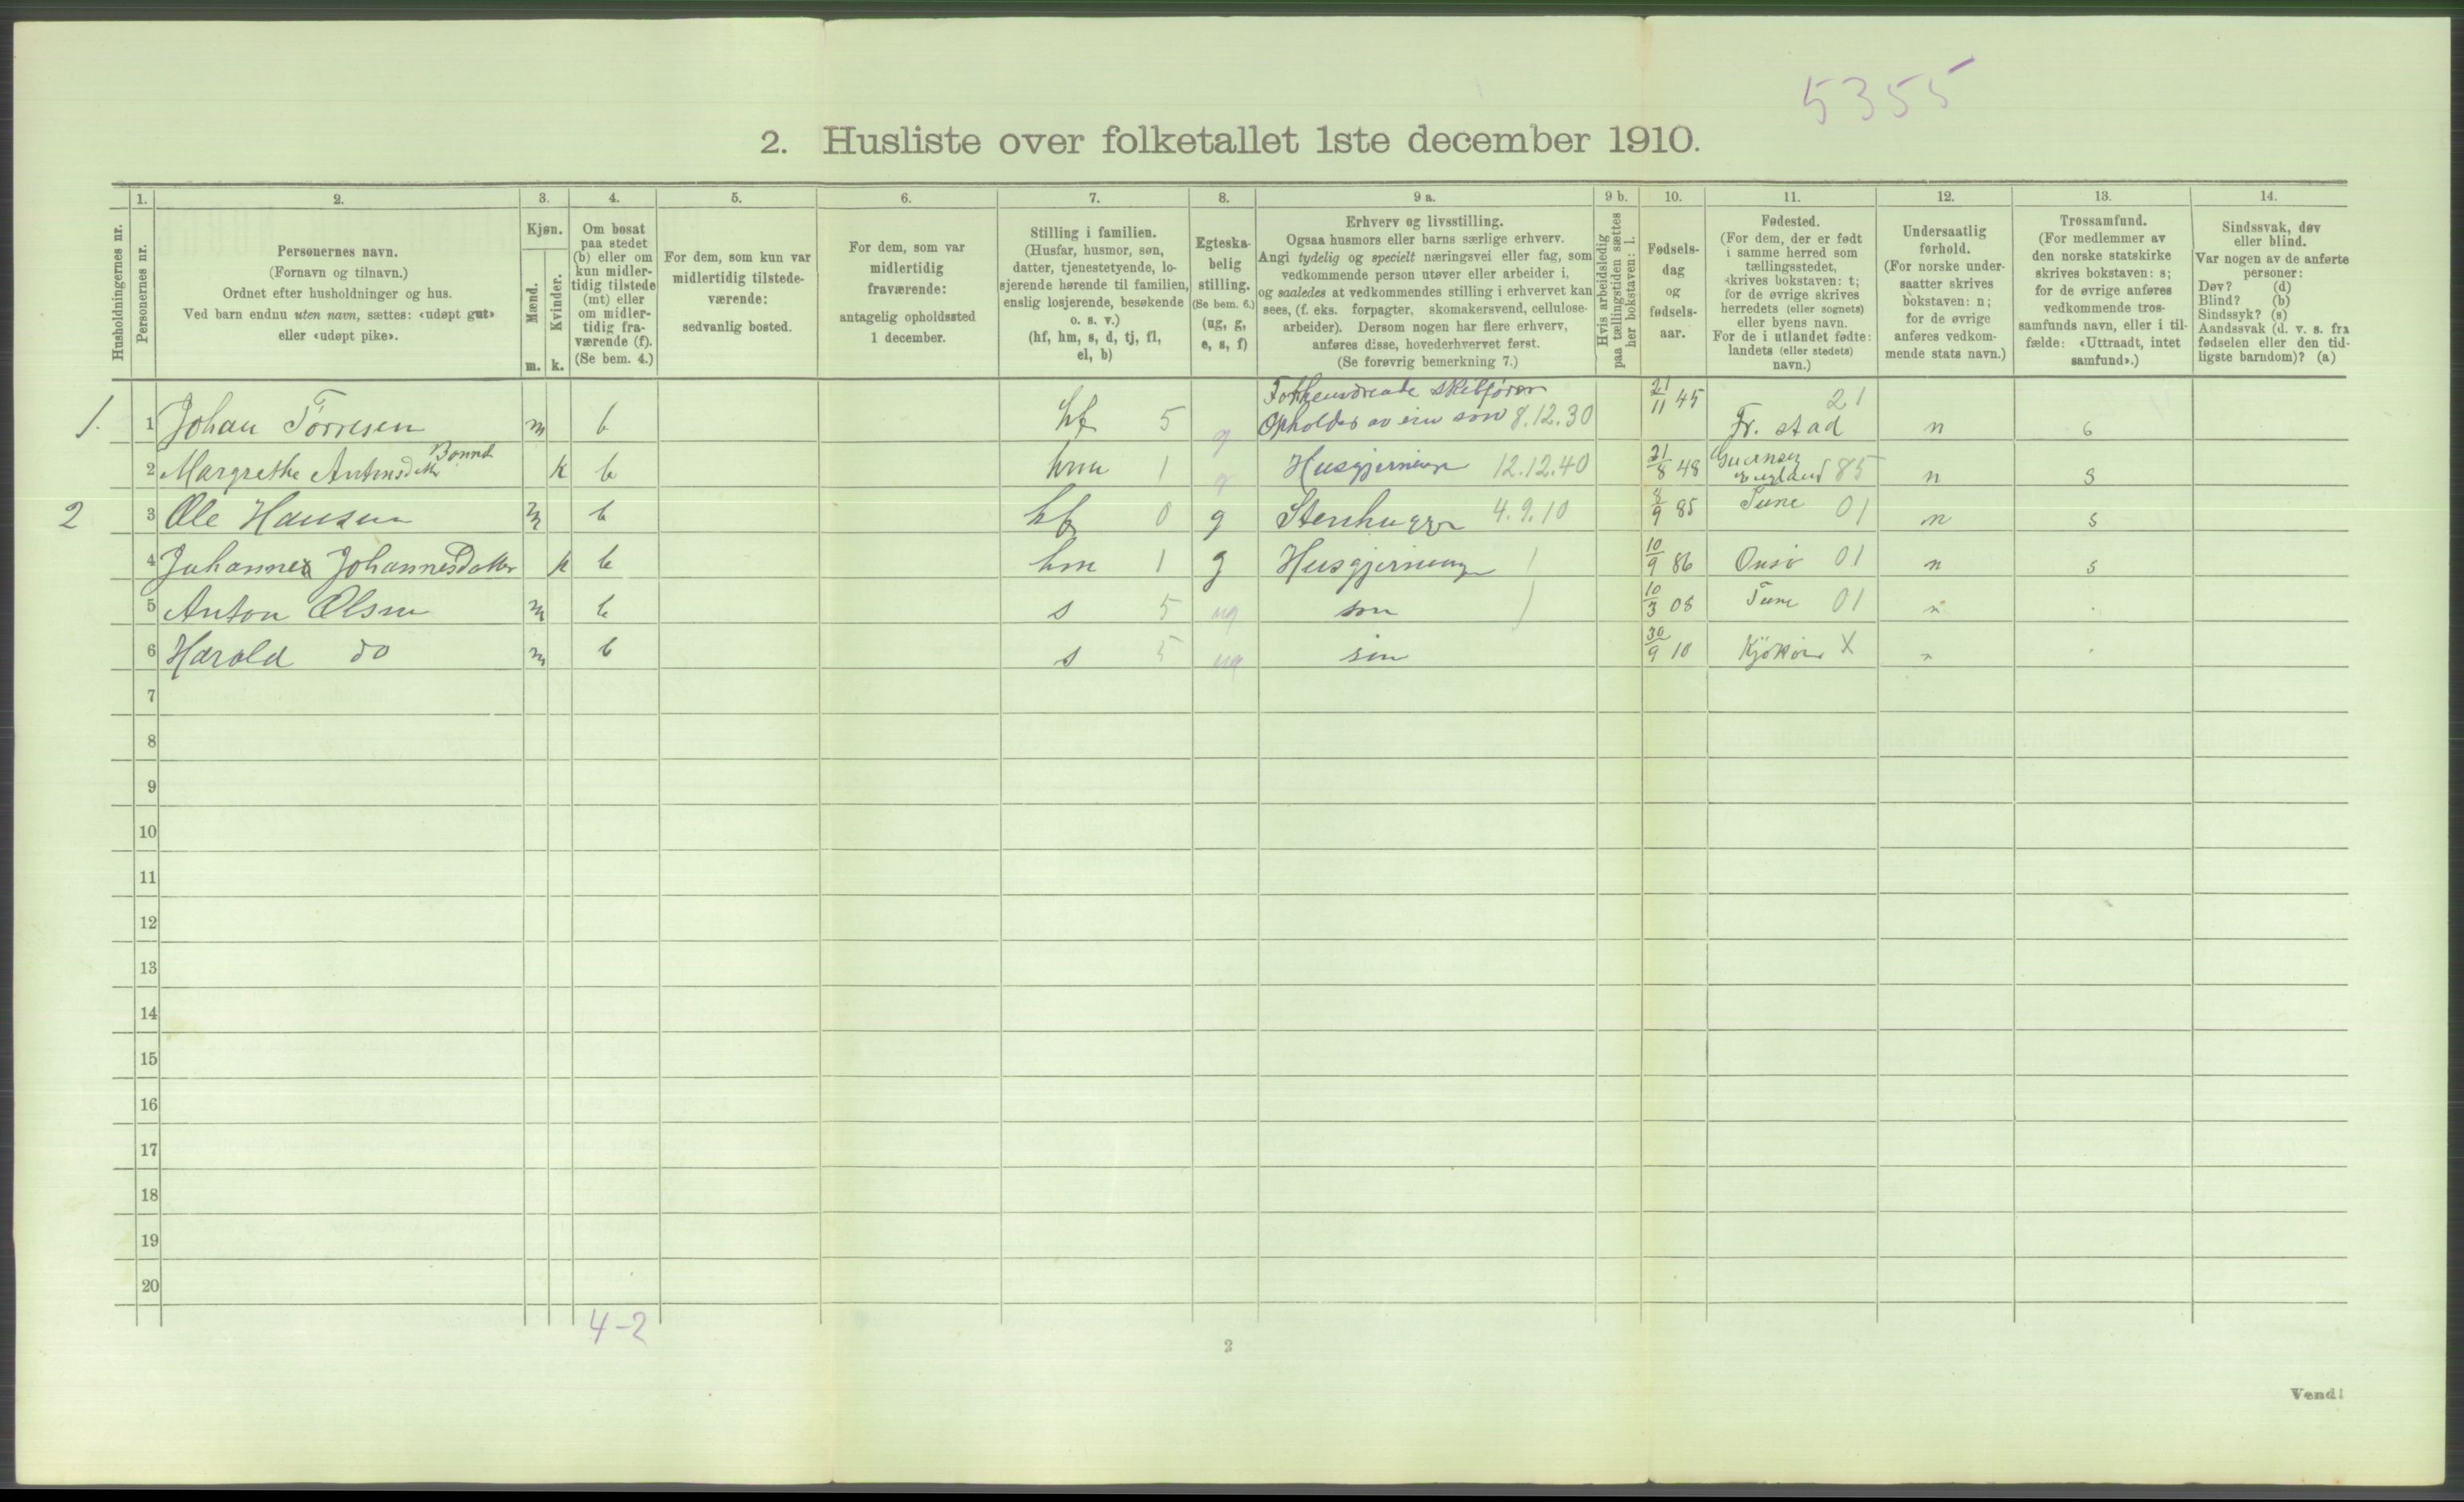 5355
2. Husliste over folketallet 1ste december 1910.
Husholdningernes nr.
1.
Personernes nr.
2.
Personernes navn.
(Fornavn og tilnavn.)
Ordnet efter husholdninger og hus.
Ved barn endnu uten navn, sættes: «udøpt gut»
eller «udøpt pike».
3.
Kjøn.
Mænd.
Kvinder.
m. k.
4.
Om bosat
paa stedet
(b) eller om
kun midler-
tidig tilstede
(mt) eller
om midler-
tidig fra-
værende (f).
(Se bem. 4.)
5.
For dem, som kun var
midlertidig tilstede-
værende:
sedvanlig bosted.
6.
For dem, som var
midlertidig
fraværende:
antagelig opholdssted
1 december.
7.
Stilling i familien.
(Husfar, husmor, søn,
datter, tjenestetyende, lo-
sjerende hørende til familien,
enslig losjerende, besøkende
o. s. v.)
(hf, hm, s, d, tj, fl,
el, b)
8.
Egteska-
belig
stilling.
(Se bem. 6.)
(ug, g,
e, s, f)
9 a.
Erhverv og livsstilling.
Ogsaa husmors eller barns særlige erhverv.
Angi tydelig og specielt næringsvei eller fag, som
vedkommende person utøver eller arbeider i,
og saaledes at vedkommendes stilling i erhvervet kan
sees, (f. eks. forpagter, skomakersvend, cellulose-
arbeider). Dersom nogen har flere erhverv,
anføres disse, hovederhvervet først.
(Se forøvrig bemerkning 7.)
9 b.
Hvis arbeidsledig
paa tællingstiden sættes
her bokstaven: l.
10.
Fødsels-
dag
og
fødsels-
aar.
11.
Fødested.
(For dem, der er født
i samme herred som
tællingsstedet,
skrives bokstaven: t;
for de øvrige skrives
herredets (eller sognets)
eller byens navn.
For de i utlandet fødte:
landets (eller stedets)
navn.)
12.
Undersaatlig
forhold.
(For norske under-
saatter skrives
bokstaven: n;
for de øvrige
anføres vedkom-
mende stats navn.)
13.
Trossamfund.
(For medlemmer av
den norske statskirke
skrives bokstaven: s;
for de øvrige anføres
vedkommende tros-
samfunds navn, eller i til-
fælde: «Uttraadt, intet
samfund».)
14.
Sindssvak, døv
eller blind.
Var nogen av de anførte
personer:
Døv? (d)
Blind? (b)
Sindssyk? (s)
Aandssvak (d. v. s. fra
fødselen eller den tid-
ligste barndom)? (a)
1. 1 Johan Torresen m b hf 5 g skibsfører Opholdes av sin søn 8.12.30 21/11 45 Fr. stad 21 n s
2 Margrethe Antonsdatter k b hm 1 g Husgjerninger 12.12.40 21/8 48 Guernsey England 85 n s
2 3 Ole Hansen m b hf 0 g Stenhugger 4.9.10 8/9 85 Tune 01 n s
4 Johanne Johannesdatter k b hm 1 g Husgjerninger 10/9 86 Onsø 01 n s
5 Anton Olsen m b s 5 ug søn 10/3 08 Tune 01 n
6 Harald do m b s 5 ug søn 30/9 10 X n
7
8
9
10
11
12
13
14
15
16
17
18
19
20
4-2
2
Vend!